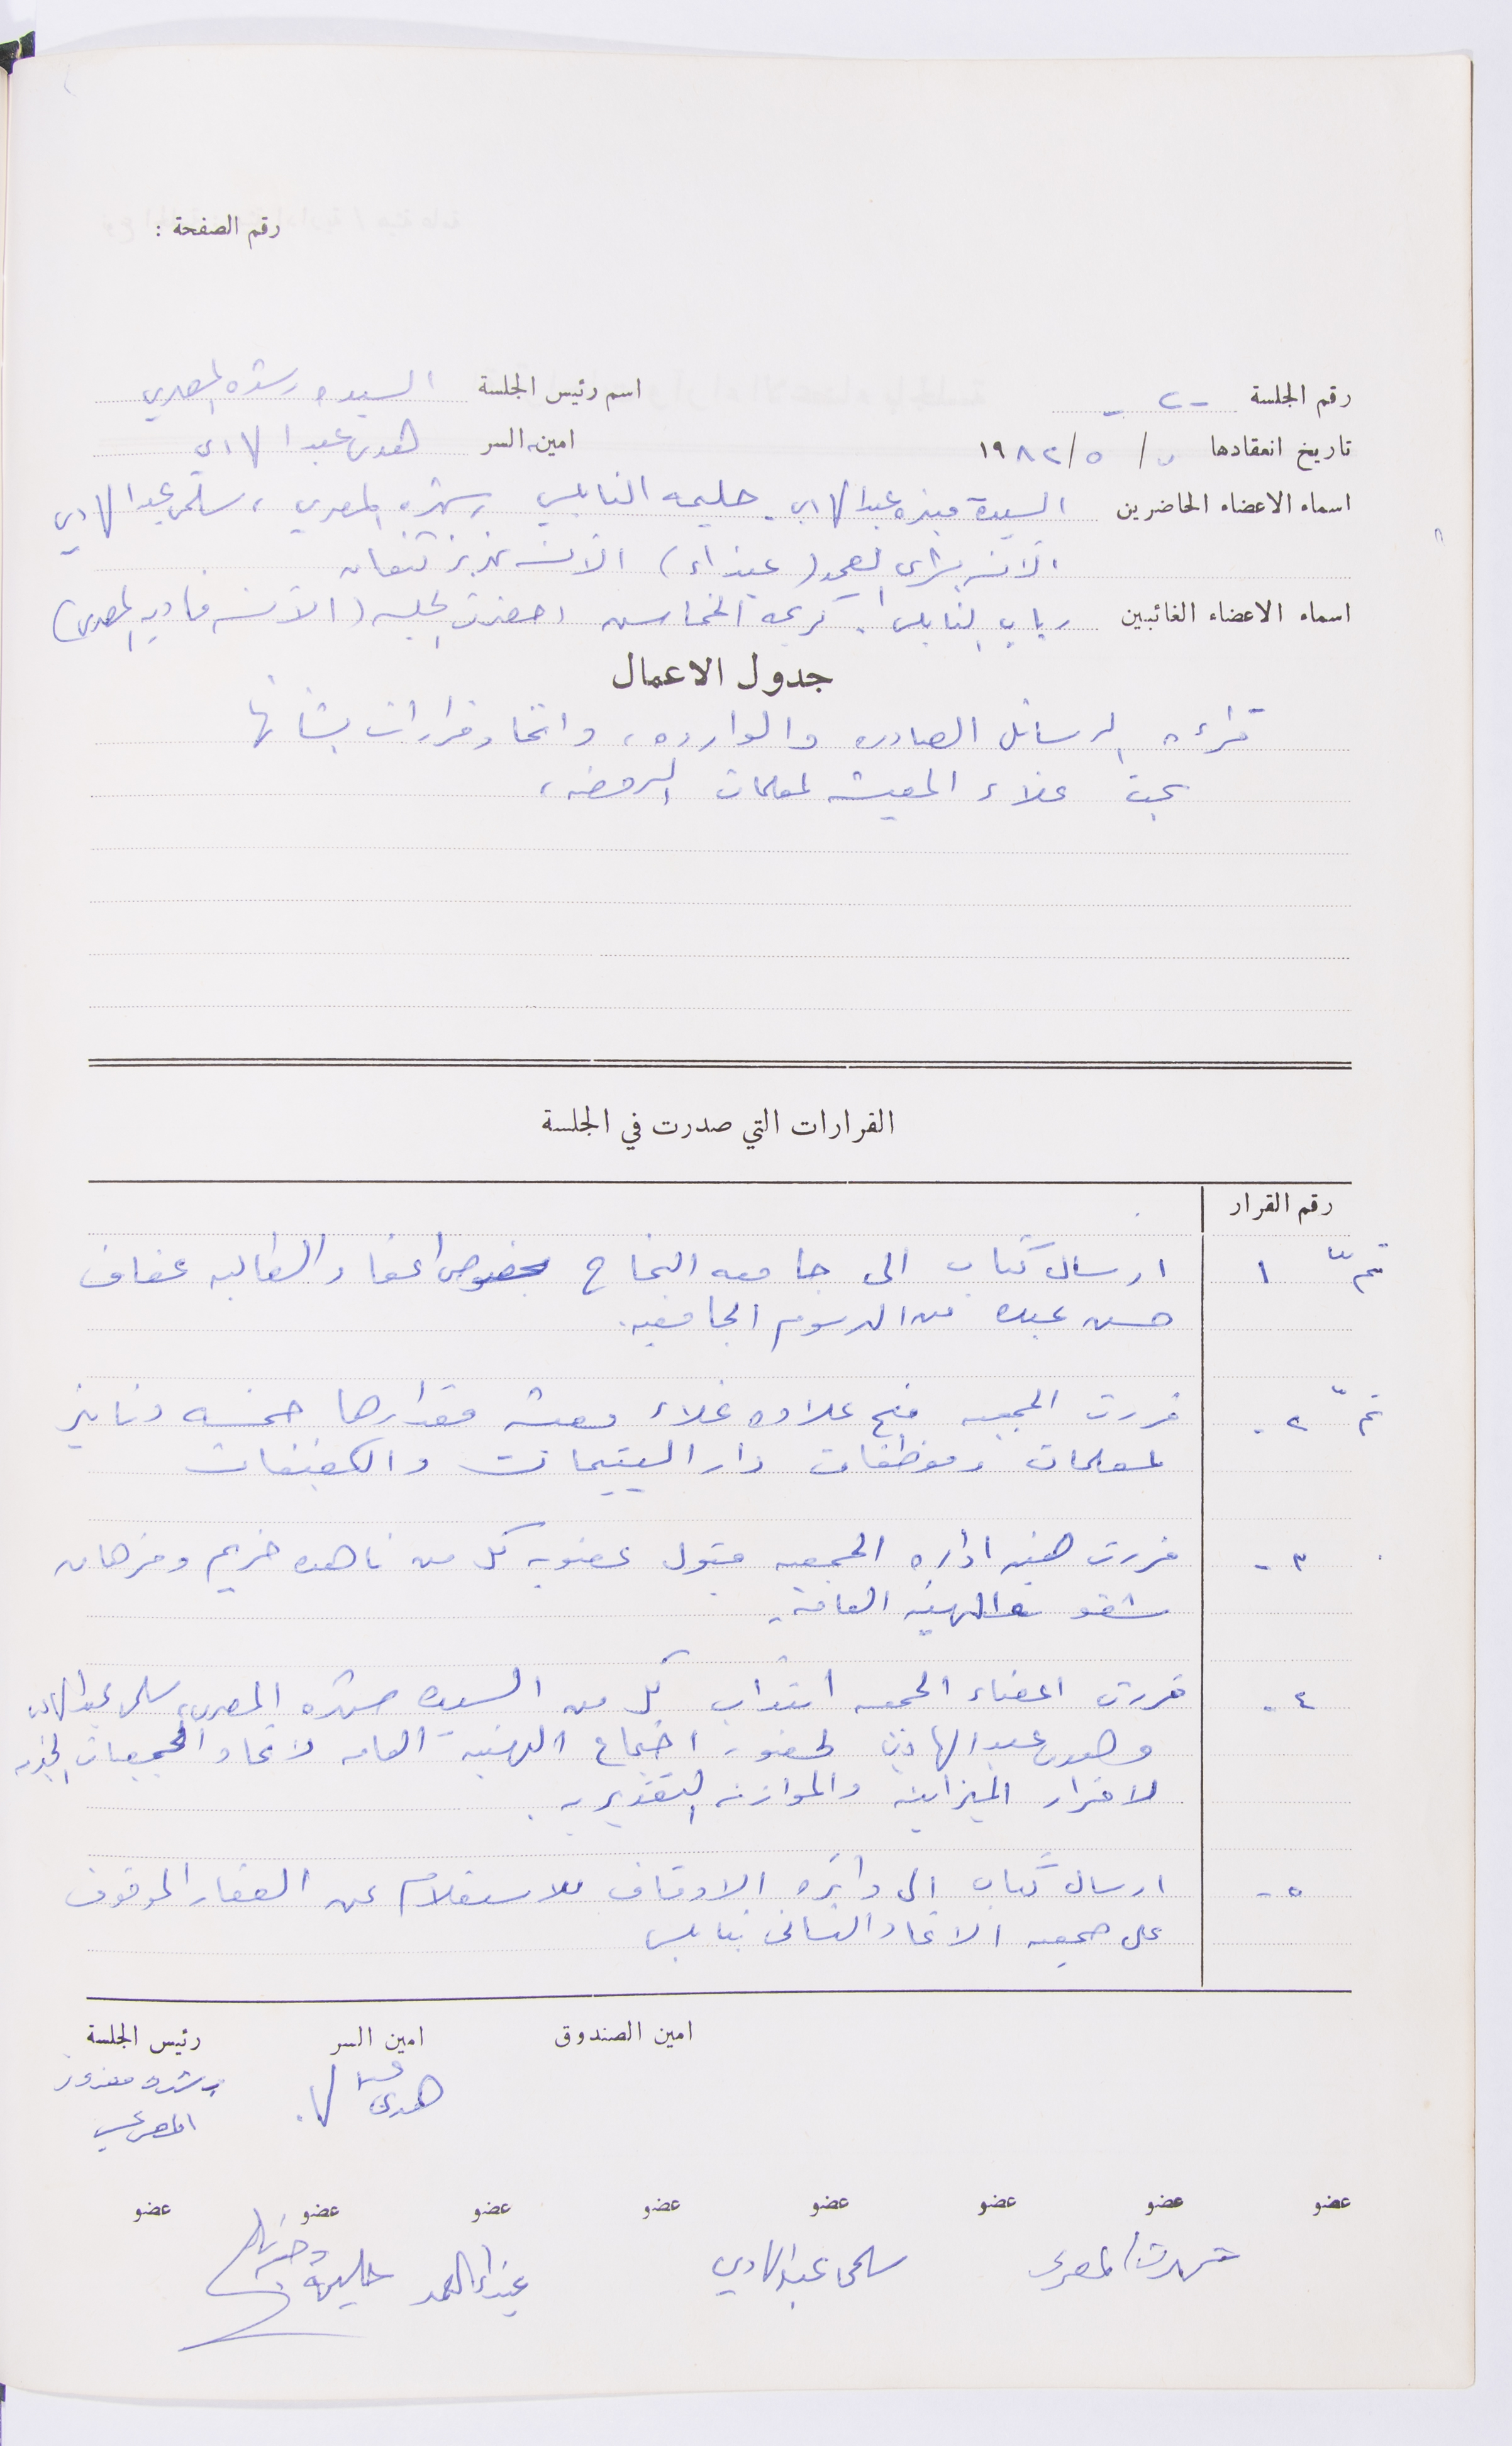 رقم الصفحة :
رقم الجلسة - ٢ - اسم رئيس الجلسة السيده رشده المصري
تاريخ انعقادها ٥ / ٥ / ١٩٨٢ امينه السر هدى عبد الهادي
اسماء الاعضاء الحاضرين السيدة عبد الهادي. حليمه النابلسي المصري ، سلمى عبد الهادي
الآنسه ( عيذاء ) الآنسه كنعان
اسماء الاعضاء الغائبين رباب النابلسي . كريمه الخماسي احضرت الجلسه ( الآنسه فاديه المصري )
جدول الاعمال
قراءه الرسائل الصادره والوارده ، واتخاذ قرارات بشأنها
بحث غلاء المعيشه لمعلمات الروضه ،
القرارات التي صدرت في الجلسة
رقم القرار
تم ١ ارسال كتاب الى جامعه النجاح بخصوص اعفاء الطالبه عفاف
حسن عبده من الرسوم الجامعيه .
تم ٢ - قررت الجمعيه منح علاوه غلاء معيشه مقدارها خمسه دنانير
لمعلمات وموظفات دار اليتيمات والكفيفات
٣ - قررت هيئه اداره الجمعيه قبول عضويه كل من ناهده خريم ومزهان
شقو الهيئه العامة .
٤ - قررت اعضاء الجمعيه انتداب كل من السيده المصري ، سلمى عبد الهادي
وهدى عبد الهادي لحضور اجتماع الهيئة العامه لاتحاد الجمعيات الخيريه
لاقرار الميزانيه والموازنه التقديريه .
٥ - ارسال كتاب الى دائره الاوقاف للاستعلام عن العقار الموقوف
على جمعيه الاتحاد النسائي نابلس
امين الصندوق امين السر رئيس الجلسة
هدى رشده
المصري
عضو عضو عضو عضو عضو عضو عضو عضو
المصري سلمى عبد الهادي حليمة